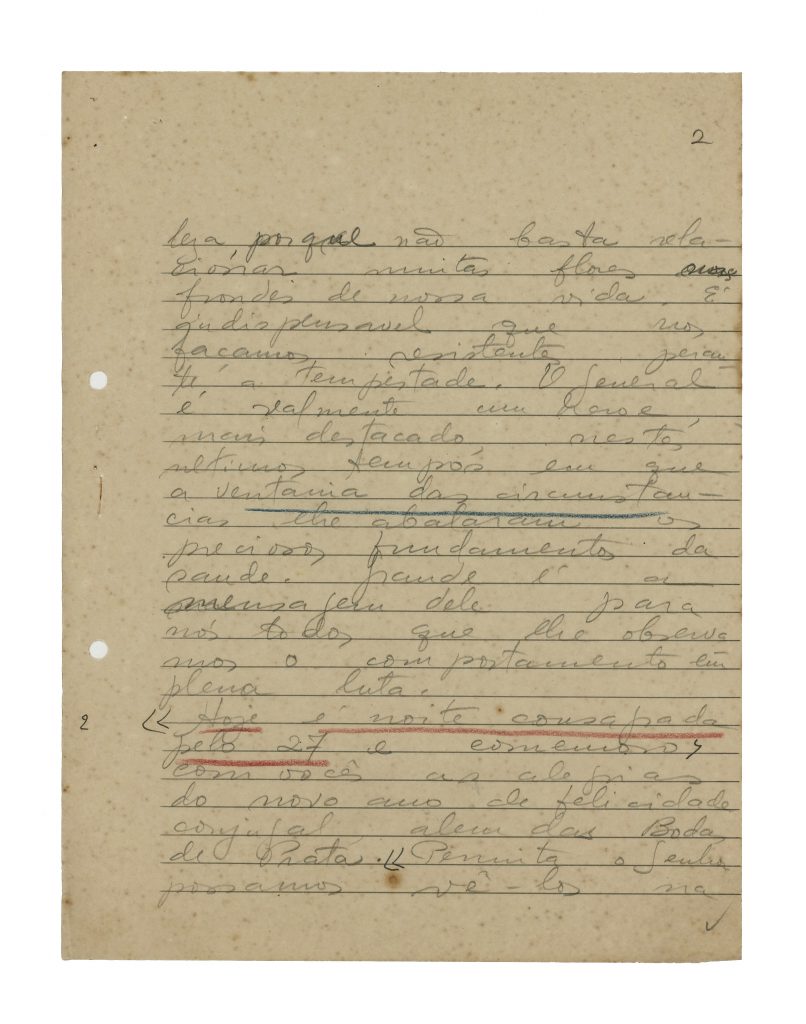 2
leza porque não basta rela-
cionar muitas flores nas
frondes de nossa vida. É
indispensavel que nos
façamos resistentes peran-
te a tempestade. O General
é realmente um heroe,
mais destacado nestes
ultimos tempos em que
a ventania das circunstan-
cias lhe abalaram os
preciosos fundamentos da
saude. Grande é a
mensagem dele para
nós todos que lhe observa
mos o comportamento em
plena luta.
2 << Hoje é noite consagrada
pelo 27 e comemoro,
com vocês as alegrias
do novo ano de felicidade
conjugal, alem das Bodas
de Prata. << Permita o Senhor
possamos vê-los na